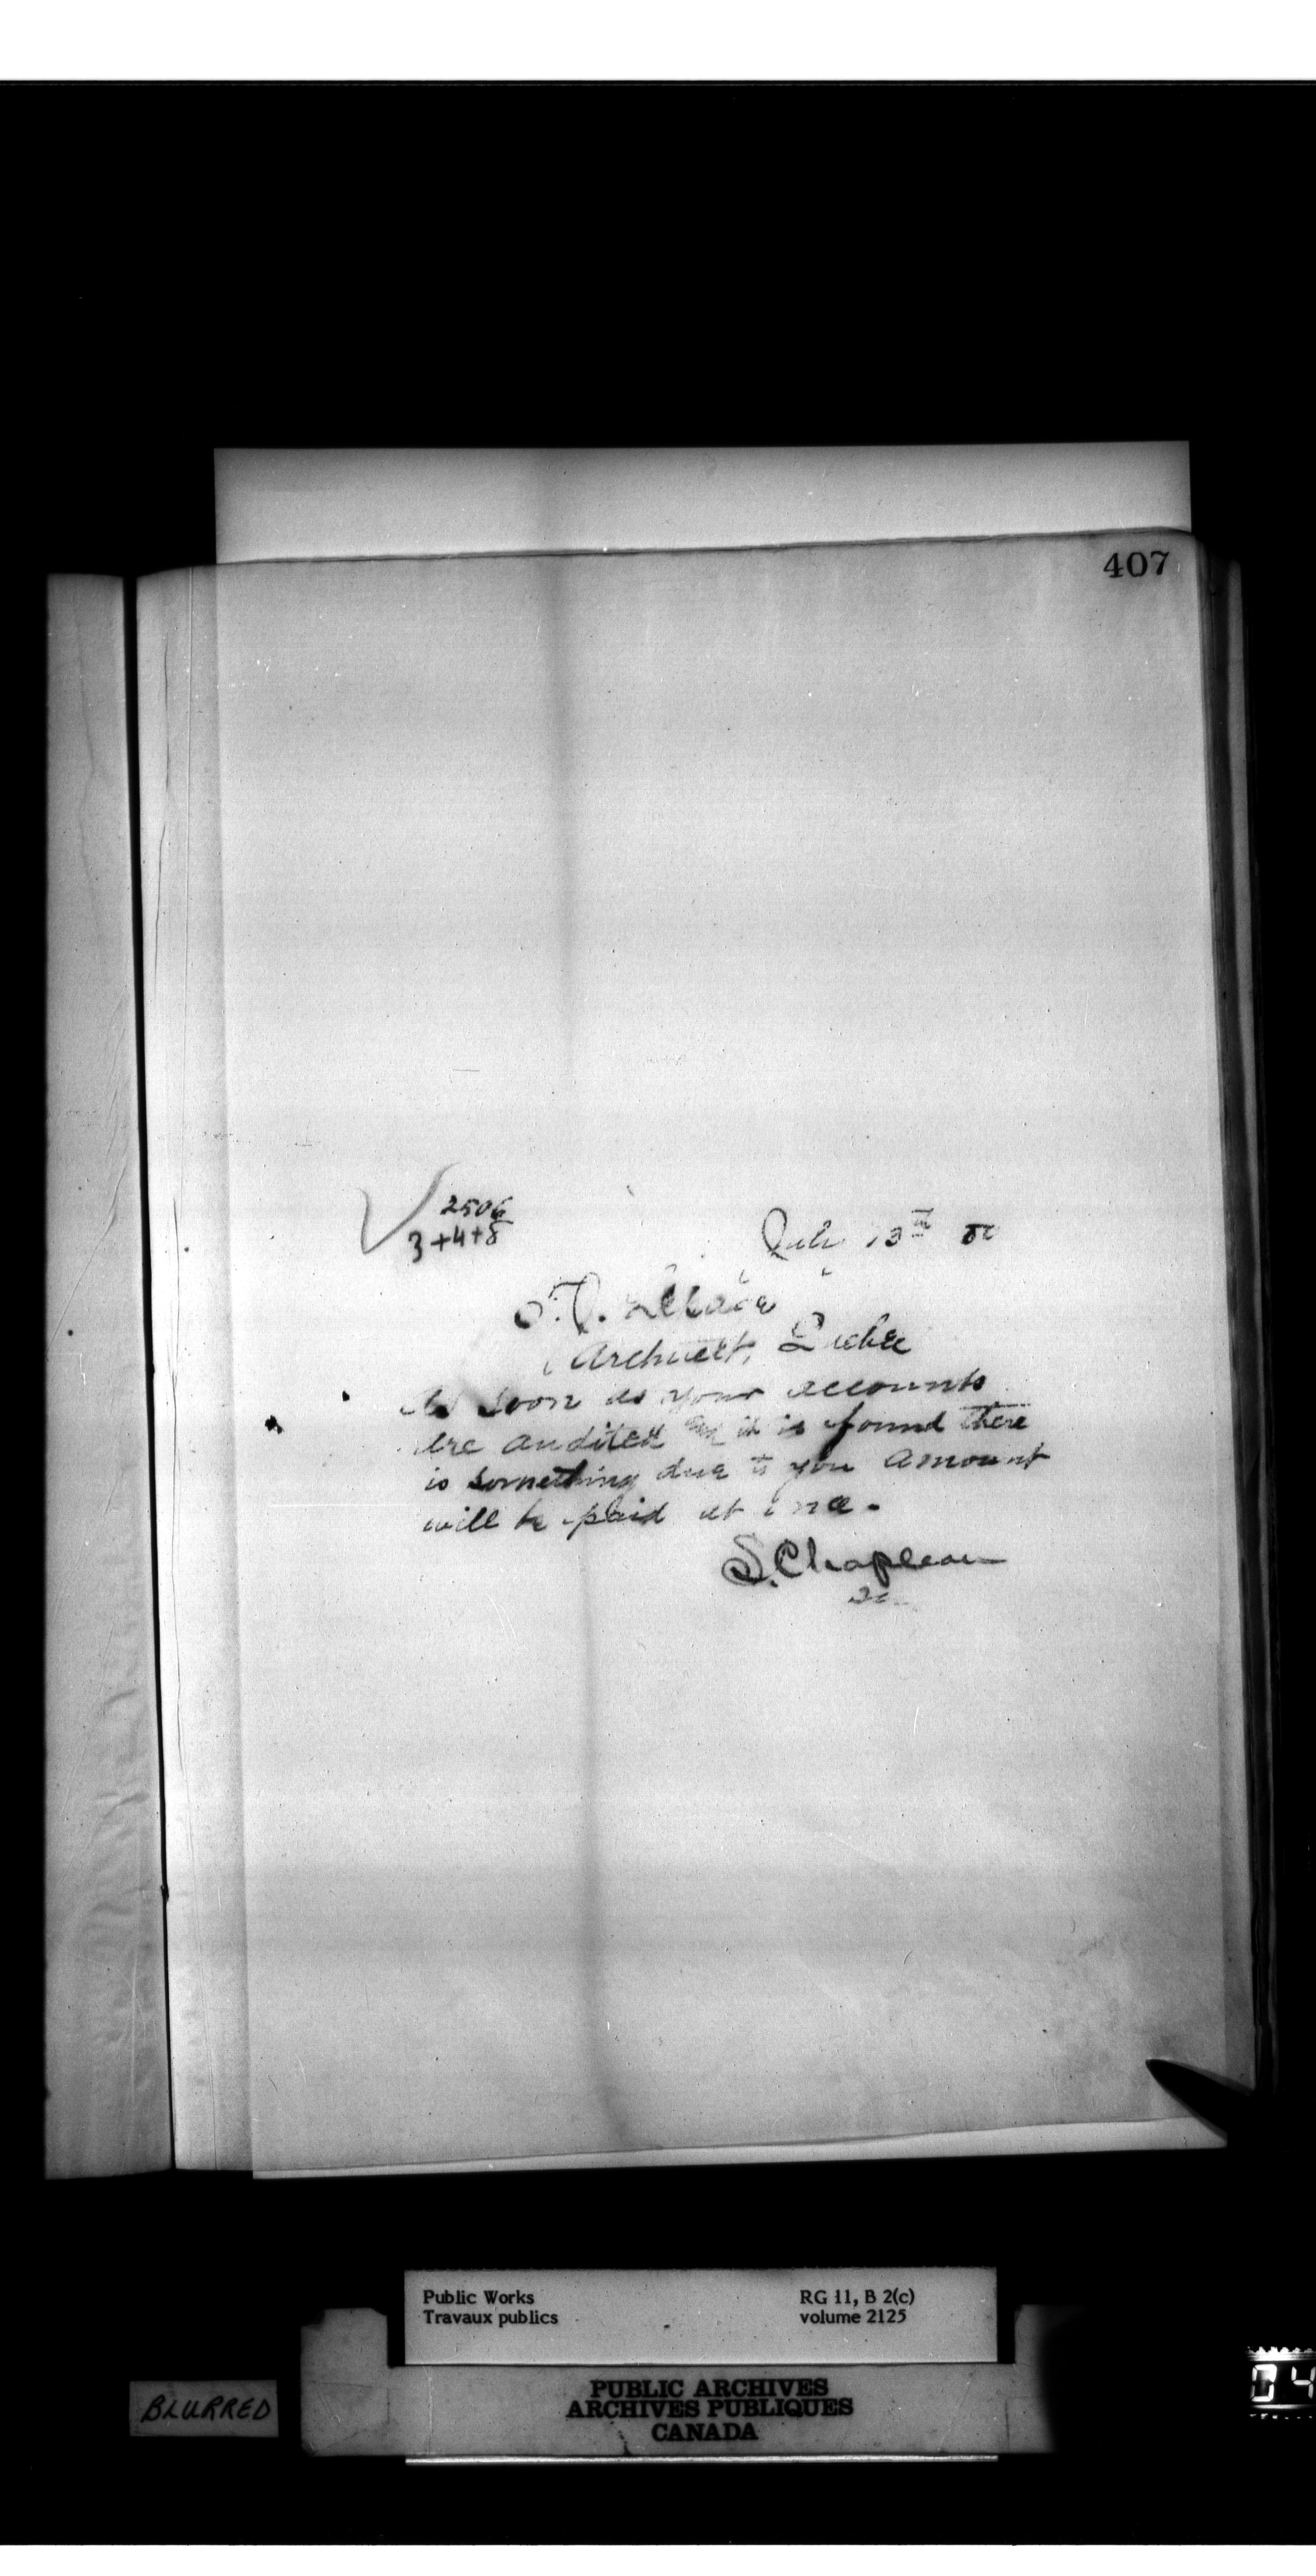 407
2506
3+4+8
July 13th 80
Architect, Quebec
As soon as your accounts
are audited & it is found there
is something due to you amount
will be paid at once.
S. Chapleau
Public Works
Travaux publics
RG 11, B 2(c)
volume 2125
BLURRED
PUBLIC ARCHIVES
ARCHIVES PUBLIQUES
CANADA
04